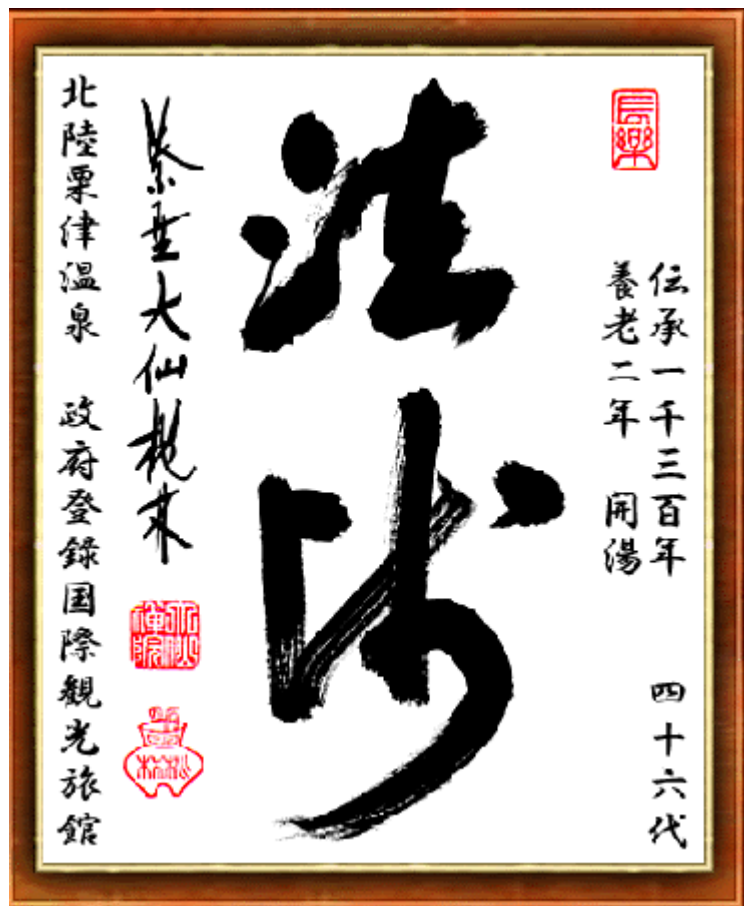 長樂
伝承一千三百年 四十六代
養老二年 開湯
法師
紫埜大仙
大仙禅院
北陸粟津温泉 政府登録国際観光旅館